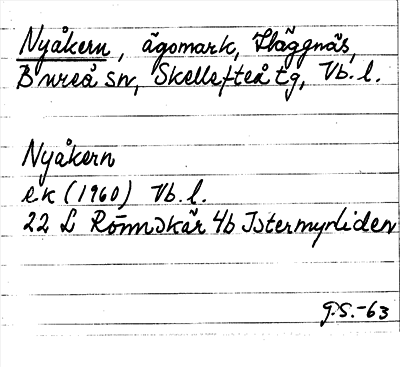 Nyåkern, ägomark, Häggnäs,
Bureå sn, Skellefteå tg, Vb. l.
Nyåkern
ek (1960) Vb. l.
22 L Rönnskär 4b Istermyrliden
G.S.-63